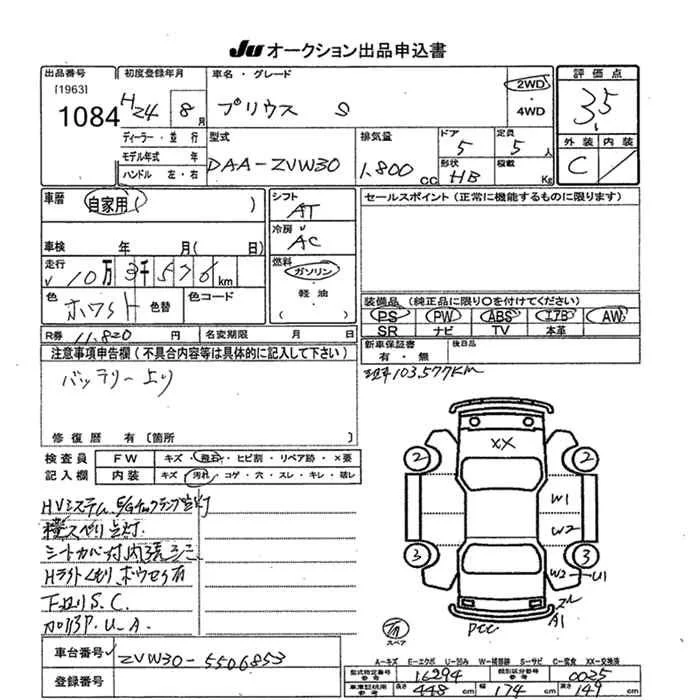 JU オークション出品申込書
出品番号 初度登録年月 車名・グレード 2WD・4WD 評価点
[1963]
1084 H24 8月 プリウス S 3.5
ディーラー・並行 型式 排気量 ドア 定員 外装 内装
モデル年式 年 DAA-ZVW30 1,800cc 5 5人 C
ハンドル 左・右 形状 HB 積載 Kg
車歴 自家用( ) シフト AT セールスポイント(正常に機能するものに限ります)
車検 年 月( 日) 冷房 AC
走行 10万3千576km 燃料 ガソリン・軽油・( )
色 ホワイト 色替 色コード 装備品(純正品に限り○を付けてください)
PS PW ABS エアB AW
SR ナビ TV 本革
R券 11,820円 名変期限 月 日 新車保証書 有・無 後日品
注意事項申告欄(不具合内容等は具体的に記入して下さい)
バッテリー上り
103,577KM
修復歴 有 [箇所 ]
検査員記入欄 FW キズ・飛石・ヒビ割・リペア跡・×要
内装 キズ・汚れ・コゲ・穴・スレ・キレ・破レ
HVシステム、E/Gチェックランプ点灯
横スベリ点灯
シートカバー付内張シミ
Hライトくもり ホウセキ有
下回りS.C.
P.U.A.
XX
2 2
W1
W2
3 3
W2 U1
A1
PCC
スペア
A-キズ E-エクボ U-凹み W-補修跡 S-サビ C-腐食 XX-交換済
車台番号 ZVW30-5506853
登録番号
型式指定番号 16294 類別区分番号 0025
長さ 448cm 幅 174cm 高さ 149cm